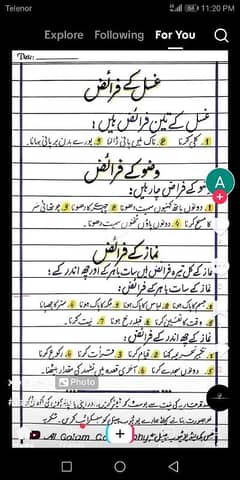 Telenor
11:20 PM
Explore Following For You
Date:
غسل کے فرائض
غسل کے تین فرائض ہیں:
1. کلی کرنا 2. ناک میں پانی ڈالنا 3. پورے بدن پر پانی بہانا۔
A
وضو کے فرائض
وضو کے فرائض چار ہیں:
1. دونوں ہاتھ کہنیوں سمیت دھونا 2. چہرے کا دھونا 3. چوتھائی سر
کا مسح کرنا 4. دونوں پاؤں ٹخنوں سمیت دھونا۔
نماز کے فرائض
نماز کے کل تیرہ فرائض ہیں سات باہر کے اور چھ اندر کے:
سات باہر کے فرائض:
1. جسم کا پاک ہونا 2. لباس کا پاک ہونا 3. جگہ کا پاک ہونا 4. ستر کا چھپانا
5. وقت کا 6. قبلہ رخ ہونا 7. نیت کرنا۔
نماز کے چھ اندر کے فرائض:
1. تکبیر تحریمہ کہنا 2. قیام کرنا 3. قرأت کرنا 4. رکوع کرنا
5. دونوں سجدے کرنا 6. آخری قعدہ میں تشہد کی مقدار بیٹھنا۔
Photo
Al Qalam